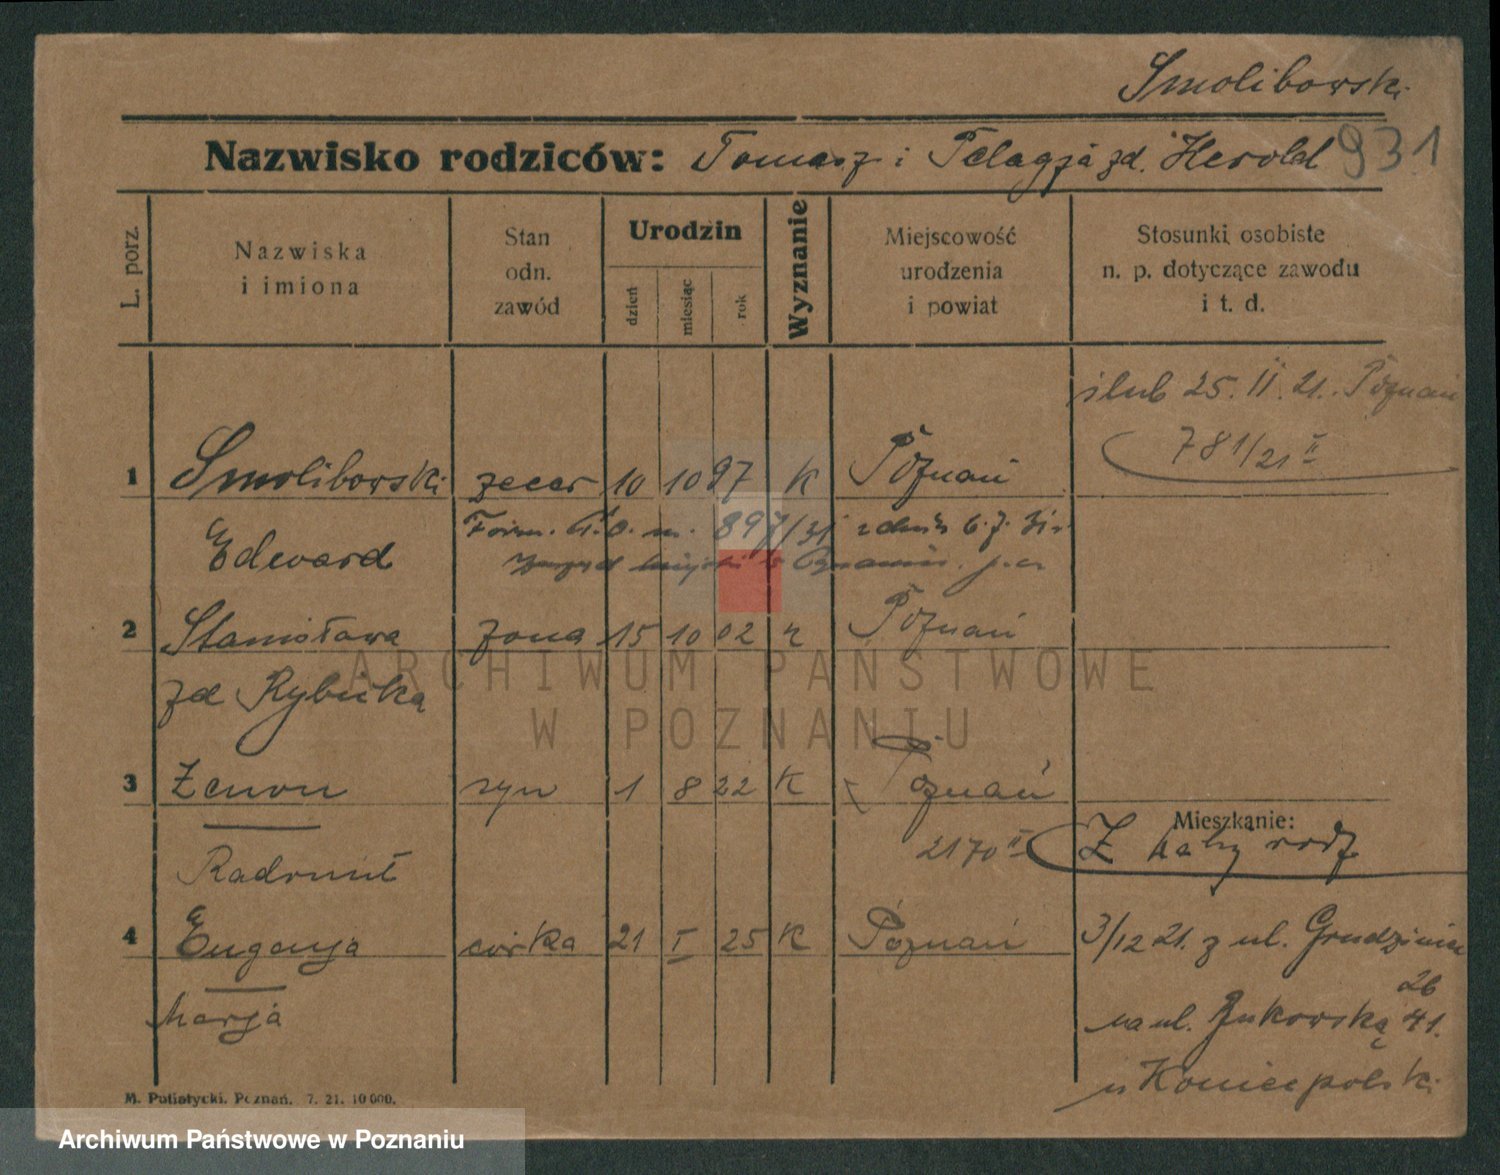 Smolibowski
Nazwisko rodziców: Tomasz i Pelagja zd. Herold 931
L. porz.
Nazwiska i imiona
Stan odn. zawód
Urodzin
dzień
miesiąc
rok
Wyznanie
Miejscowość urodzenia i powiat
Stosunki osobiste n. p. dotyczące zawodu i t. d.
ślub 25. II. 21. Poznań
781/21 II
1 Smolibowski zecer 10 10 97 K Poznań
Edward
897/31
2 Stanisława żona 15 10 02 Poznań
zd Rybicka
3 Zenon syn 1 8 22 K Poznań
2170 II
Mieszkanie:
Z karty rodz
Radomił
4 Eugenja córka 21 I 25 K Poznań
3/12 21. z ul.
Marja
26
na ul. Żukowską 41.
u Koniecpolski
M. Putiatycki, Poznań. 7. 21. 10 000.
ARCHIWUM PAŃSTWOWE
W POZNANIU
Archiwum Państwowe w Poznaniu